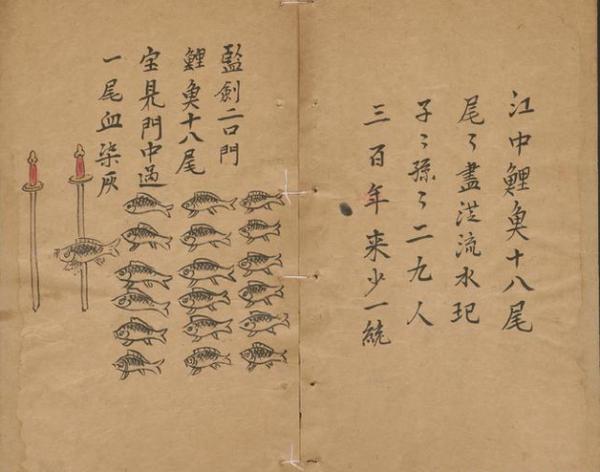 江中鯉魚十八尾
尾々盡從流水圯
子々孫々二九人
三百年来少一統
監劍二口門
鯉魚十八尾
宝見門中過
一尾血染灰